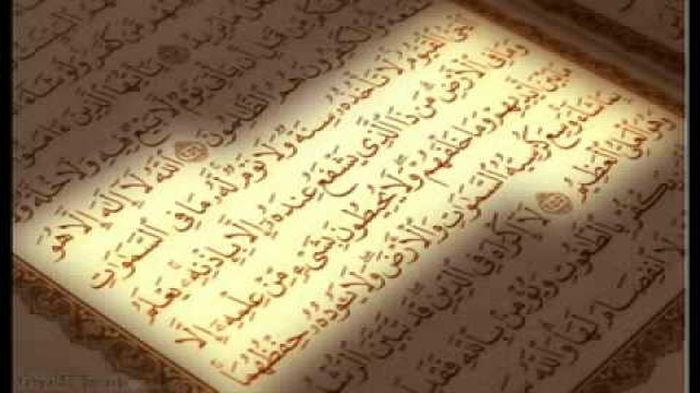 يُرِيدُ ﴿٢٥٣﴾ يَٰٓأَيُّهَا ٱلَّذِينَ ءَامَنُوٓا۟
مِّن قَبْلِ أَن يَأْتِىَ يَوْمٌ لَّا بَيْعٌ فِيهِ وَلَا خُلَّةٌ
وَٱلْكَٰفِرُونَ هُمُ ٱلظَّٰلِمُونَ ﴿٢٥٤﴾ ٱللَّهُ لَآ إِلَٰهَ إِلَّا هُوَ
ٱلْحَىُّ ٱلْقَيُّومُ ۚ لَا تَأْخُذُهُۥ سِنَةٌ وَلَا نَوْمٌ ۚ لَّهُۥ مَا فِى ٱلسَّمَٰوَٰتِ
وَمَا فِى ٱلْأَرْضِ ۗ مَن ذَا ٱلَّذِى يَشْفَعُ عِندَهُۥٓ إِلَّا بِإِذْنِهِۦ ۚ يَعْلَمُ
مَا بَيْنَ أَيْدِيهِمْ وَمَا خَلْفَهُمْ ۖ وَلَا يُحِيطُونَ بِشَىْءٍ مِّنْ عِلْمِهِۦٓ إِلَّا
بِمَا شَآءَ ۚ وَسِعَ كُرْسِيُّهُ ٱلسَّمَٰوَٰتِ وَٱلْأَرْضَ ۖ وَلَا يَـُٔودُهُۥ حِفْظُهُمَا ۚ
وَهُوَ ٱلْعَلِىُّ ٱلْعَظِيمُ ﴿٢٥٥﴾ لَآ إِكْرَاهَ فِى ٱلدِّينِ ۖ قَد تَّبَيَّنَ ٱلرُّشْدُ
يَكْفُرْ بِٱلطَّٰغُوتِ وَيُؤْمِنۢ بِٱللَّهِ فَقَدِ
لَا ٱنفِصَامَ لَهَا ۗ وَٱللَّهُ